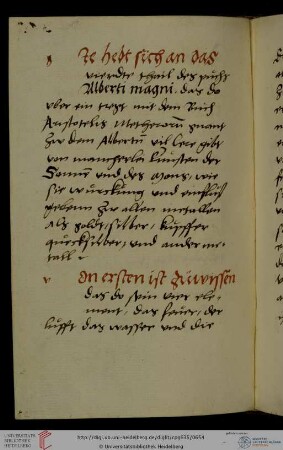 Ie hebt sich an das
vierdte theil des puchs
Alberti magni. das do
vber ein trest mit dem Buch
Aristotelis Metheororum genant
Zw dem Alberto vil lere gibt
von mancherlei kunsten der
Sonne vnd des mons, wie
sie wurckung vnd einfluß
geben zw allen metallen
als goldt, silber, kupffer
quecksilber, vnd ander me-
tall
on ersten ist zuwissen
das do sein vier ele-
ment, das feuer, der
lufft das wasser vnd die
http://digi.ub.uni-heidelberg.de/diglit/cpg635/0654
© Universitätsbibliothek Heidelberg
UNIVERSITÄTS-
BIBLIOTHEK
HEIDELBERG